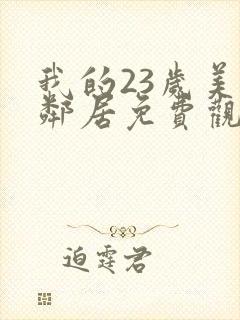 我的23歲美
鄰居免費觀
迫霆君